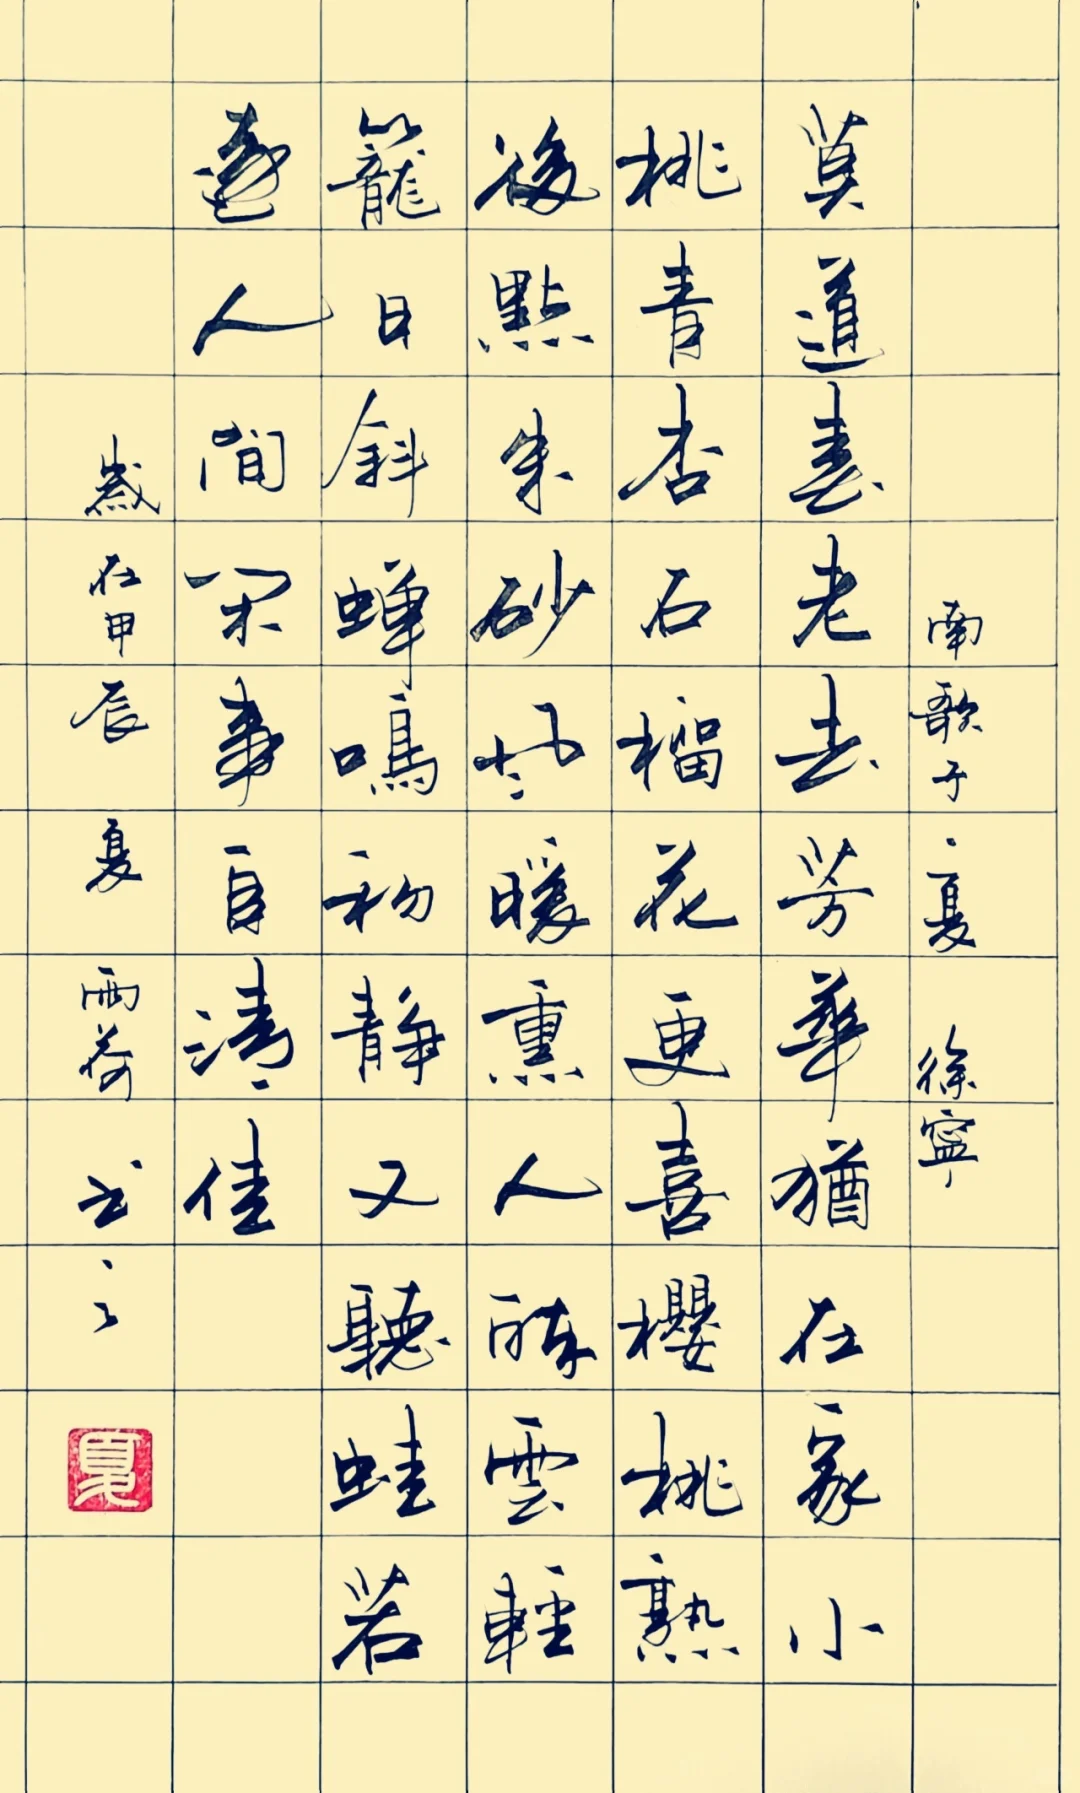 南歌子·夏 徐寧
莫道春老去芳華猶在家小
桃青杏石榴花更喜櫻桃熟
後點朱砂風暖熏人醉雲輕
籠日斜蟬鳴初靜又聽蛙若
遠人間閑事自清佳
歲在甲辰夏 雨荷書之
夏